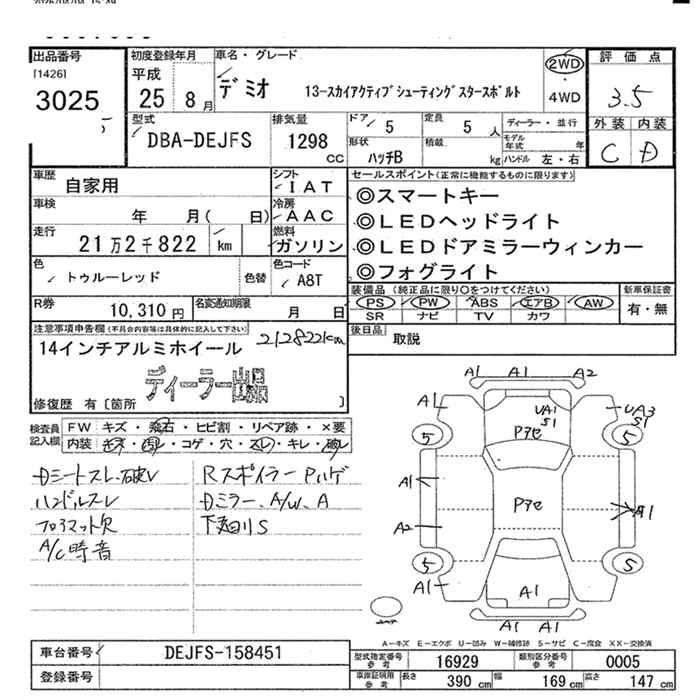 出品番号 初度登録年月 車名・グレード 評価点
[1426] 平成 2WD
3025 25 8月 デミオ 13-スカイアクティブシューティングスタースポルト ・ 3.5
4WD
型式 排気量 ドア 定員 ディーラー・並行 外装 内装
DBA-DEJFS 1298 CC 5 5 人 モデル年式 年 C D
形状 積載
ハッチB kg ハンドル 左・右
車歴 自家用 シフト IAT セールスポイント(正常に機能するものに限ります)
車検 年 月( 日) 冷房 AAC ◎スマートキー
走行 21万2千822 km 燃料 ガソリン ◎LEDヘッドライト
◎LEDドアミラーウィンカー
色 トゥルーレッド 色替 色コード A8T ◎フォグライト
R券 10,310円 名変通知期限 月 日 装備品(純正品に限り○をつけてください) 新車保証書
PS PW ABS エアB AW 有・無
SR ナビ TV カワ
注意事項申告欄(不具合内容等は具体的に記入して下さい) 212822km 後日品 取説
14インチアルミホイール
ディーラー出品
修復歴 有〔箇所 〕
検査員記入欄 FW キズ・飛石・ヒビ割・リペア跡・×要
内装 キズ・汚れ・コゲ・穴・スレ・キレ・破レ
Dシートスレ・破レ Rスポイラー Pハゲ
ハンドルスレ Dミラー、A/W、A
フロアマット欠 下廻り S
A/C時音
A1 A1 A2
A1 UA1 S1 UA3 S1
5 Pアセ 5
A1
Pアセ A1
A2
5 5
A1 A1
A1 A1 A1
A-キズ E-エクボ U-凹み W-補修跡 S-サビ C-腐食 XX-交換済
車台番号 DEJFS-158451 型式指定番号 参考 16929 類別区分番号 参考 0005
登録番号 車庫証明用 参考 長さ 390 cm 幅 169 cm 高さ 147 cm